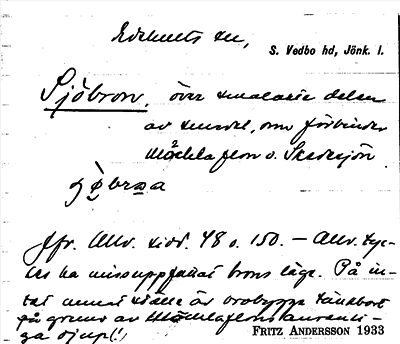 Edshults sn,
S. Vedbo hd, Jönk. l.
Sjöbron, över smalaste delen
av sundet, som förbinder
o. Skedesjön
Jfr. Allv. siod. 48 o. 150. — Allv. tyc-
kes ha missuppfattat brons läge. På in-
tet annat ställe är brobygge tänkbart
på grund av
ga djup(!)
FRITZ ANDERSSON 1933